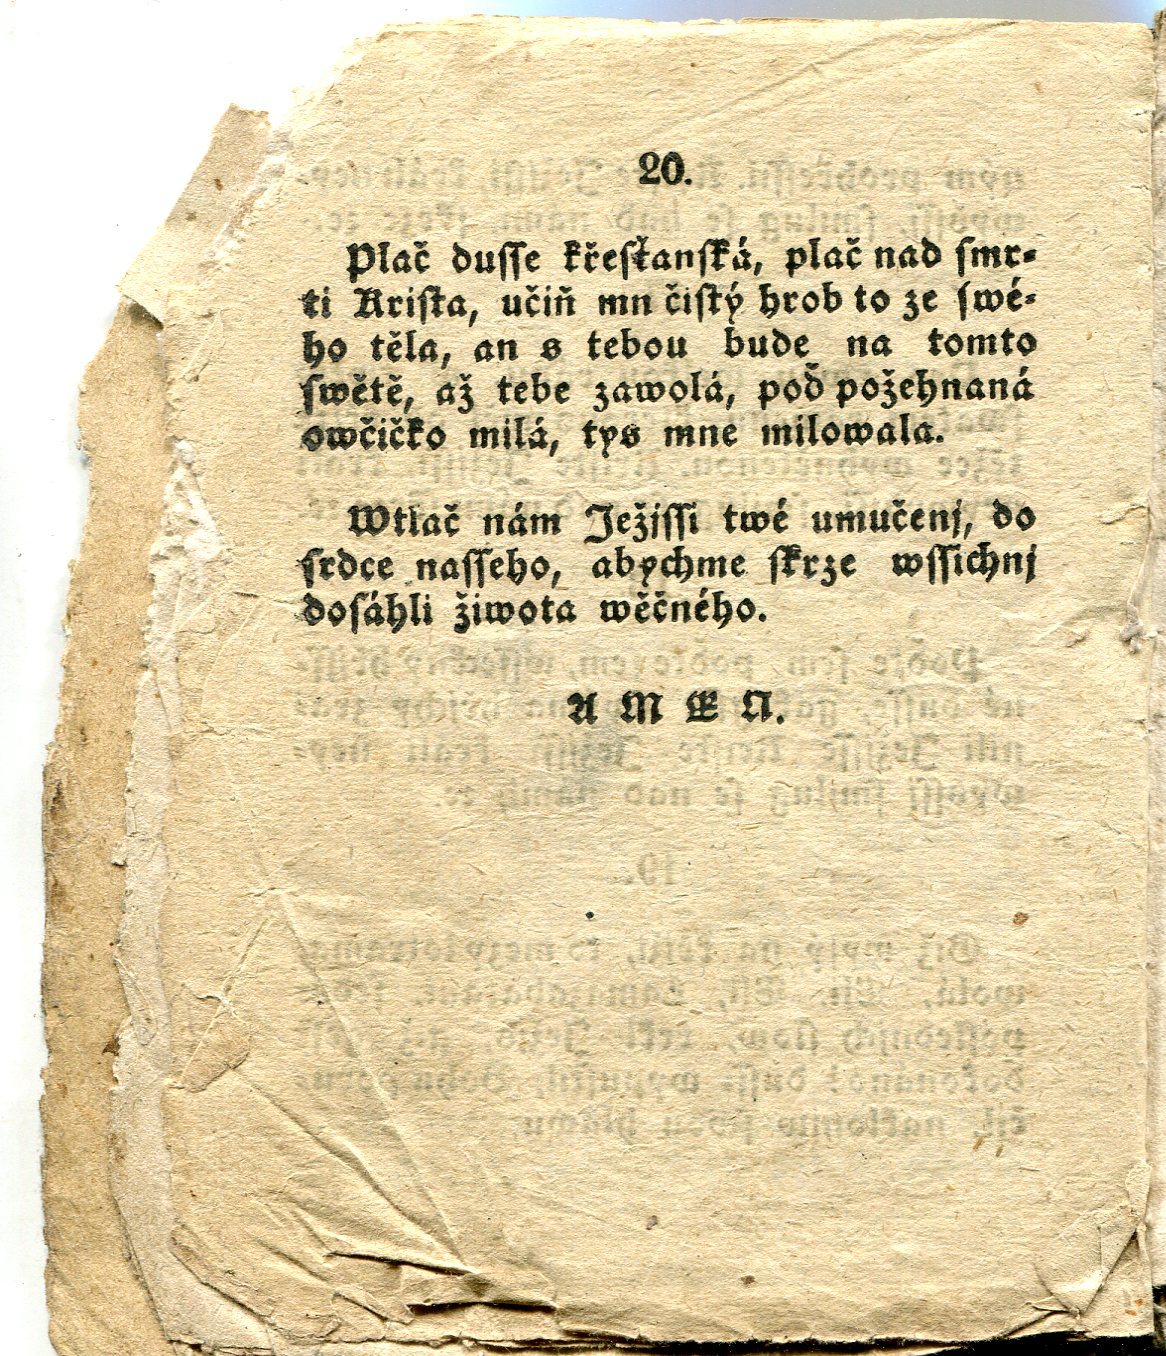 20.
Plač dusſe křeſťanſká, plač nad ſmr-
ti Kriſta, učiň mn čiſtý hrob to ze ſwé-
ho těla, an s tebou bude na tomto
ſwětě, až tebe zawolá, poď požehnaná
owčičko milá, tys mne milowala.
Wtlač nám Ježjſſi twé umučenj, do
ſrdce naſſeho, abychme ſkrze wſſichnj
doſáhli žiwota wěčného.
A M E N.